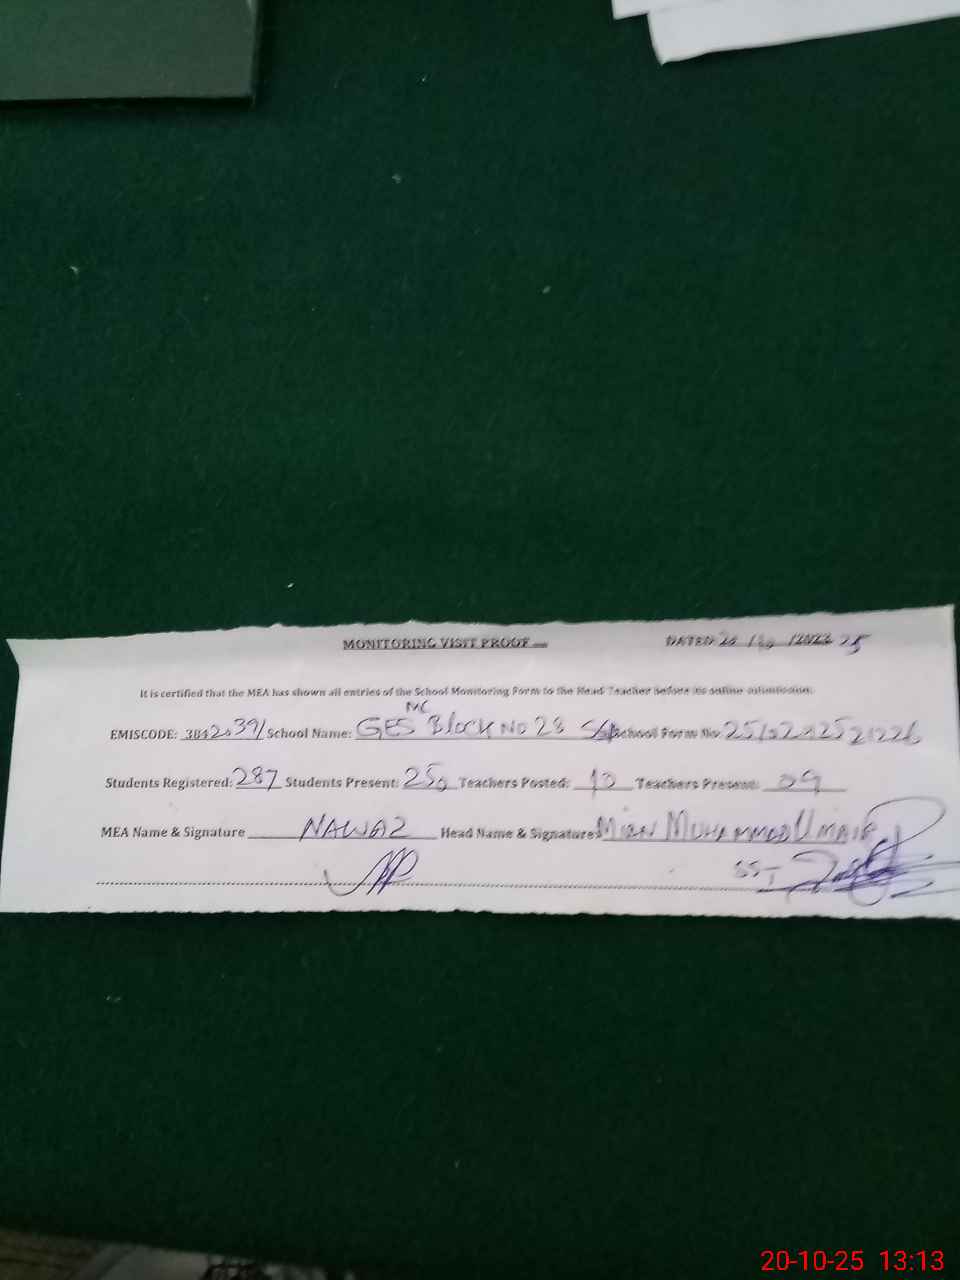 MONITORING VISIT PROOF DATED 20 / 10 / 25
It is certified that the MEA has shown all entries of the School Monitoring Form to the Head Teacher before its online submission.
MC
EMISCODE: 38420391 School Name: GES Block NO 28 School Form No
Students Registered: 287 Students Present: 250 Teachers Posted: 10 Teachers Present: 09
MEA Name & Signature NAWAZ Head Name & Signature: Mian Muhammad Umair
SST
20-10-25 13:13